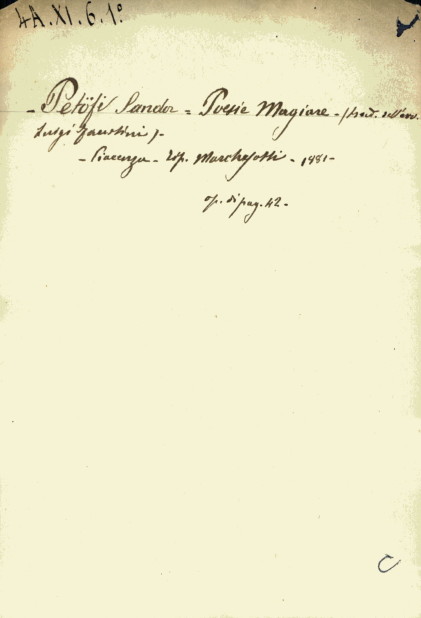 4A.XI.6.1°
- Petöfi Sandor = Poesie Magiare - (trad. dell'avv.
Luigi Faustini) -
- Piacenza - Tip. Marchesotti - 1881 -
op. di pag. 42 -
C